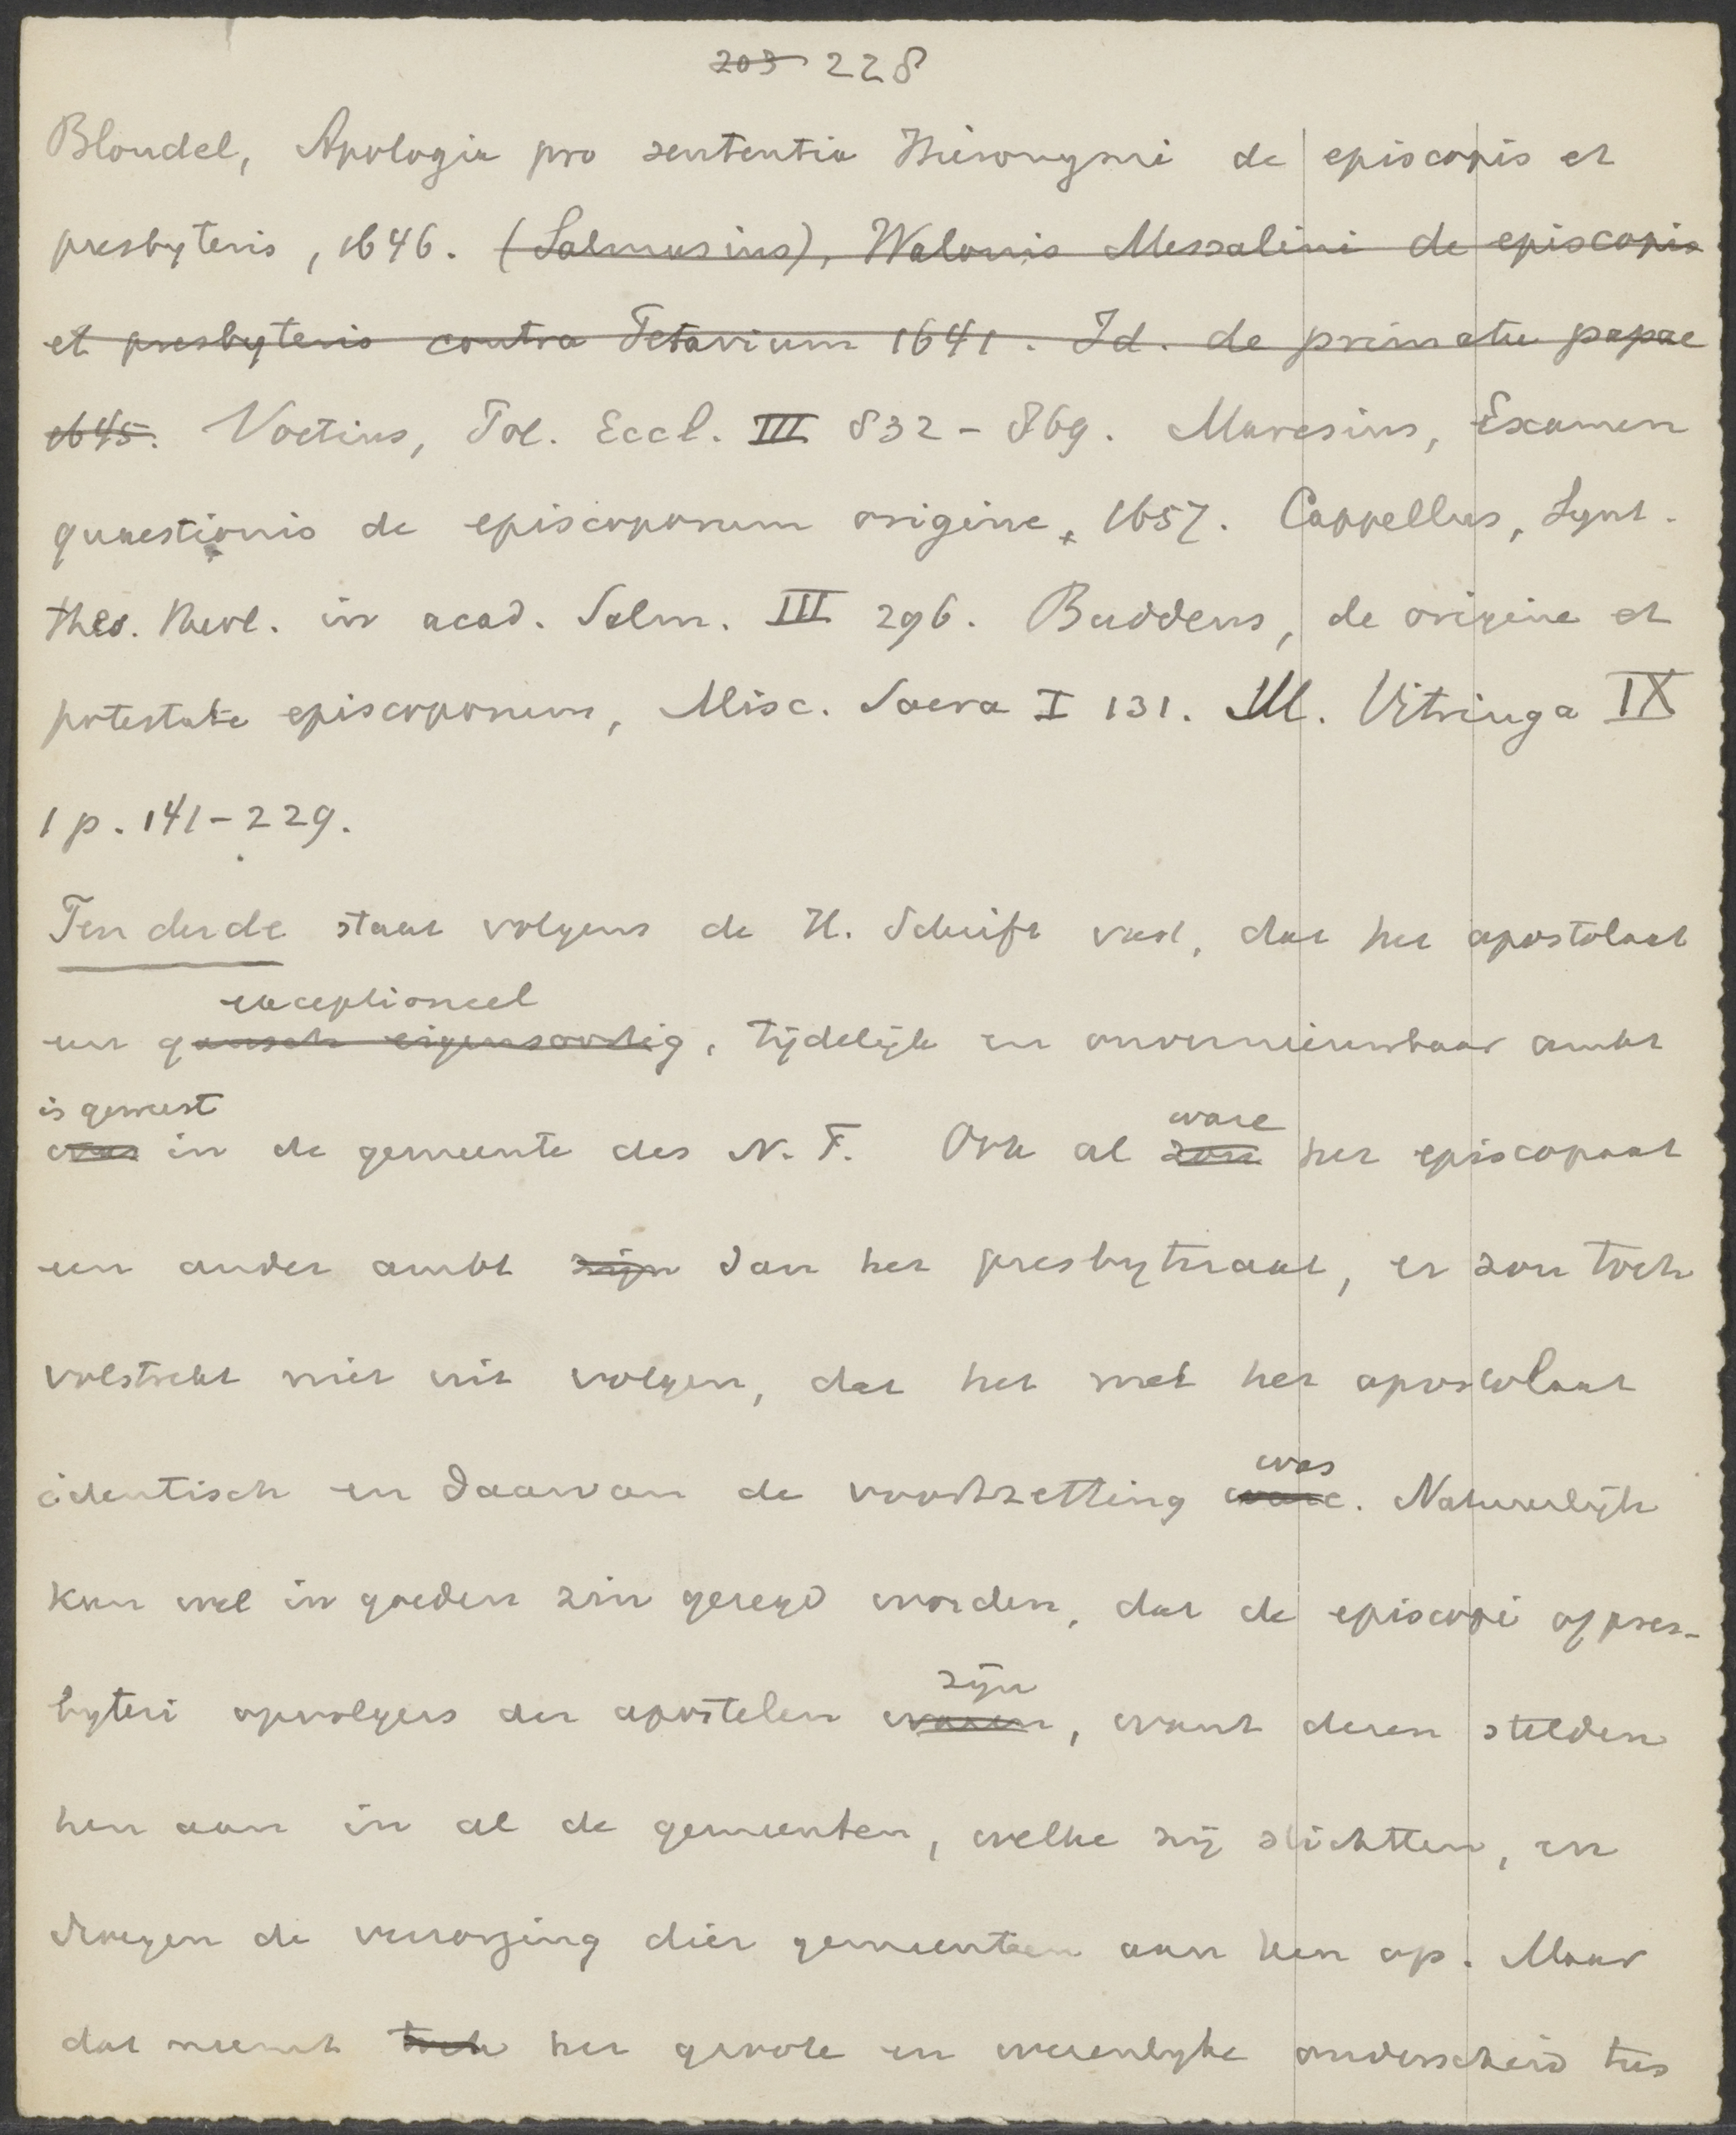 203 228
Blondel, Apologia pro sententia Hieronymi de episcopis et
presbyteris, 1646. (Salmasius), Walonis Messalini de episcopis
et presbyteris contra Petavium 1641. Id. de primatu papae
1645. Voetius, Pol. Eccl. III 832-869. Maresius, Examen
quaestionis de episcoporum origine, 1657. Cappellus, Synt.
thes. theol. in acad. Salm. III 296. Buddeus, de origine et
potestate episcoporum, Misc. Sacra I 131. M. Vitringa IX
1 p. 141-229.
Ten derde staat volgens de H. Schrift vast, dat het apostolaat
exceptioneel
een gansch eigensoortig, tijdelijk en onvernieuwbaar ambt
is geweest
was in de gemeente des N. T. Ook al zou het episcopaat
ware
een ander ambt zijn dan het presbyteraat, er zou toch
volstrekt niet uit volgen, dat het met het apostolaat
was
identisch en daarvan de voortzetting ware. Natuurlijk
kan wel in goeden zin gezegd worden, dat de episcopi of pres-
zijn
byteri opvolgers der apostelen waren, want dezen stelden
hen aan in al de gemeenten, welke zij stichtten, en
droegen de verzorging dier gemeenten aan hen op. Maar
dat neemt toch het groote en wezenlyke onderscheid tus